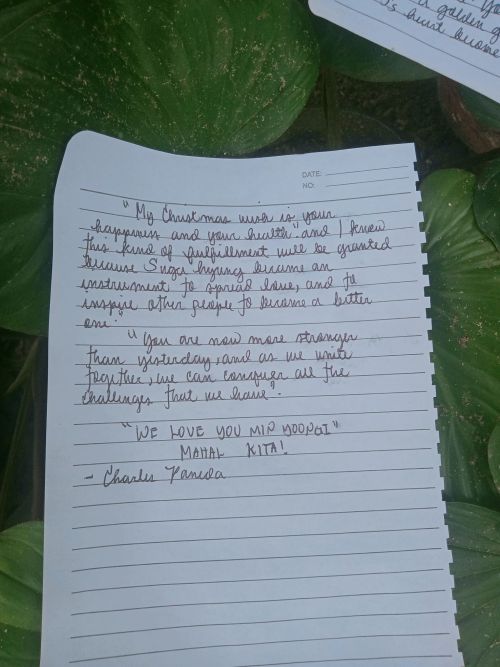 a golden g
s heart become
DATE:
NO:
"My Christmas wish is your
happiness and your health" and I know
this kind of fulfillment will be granted
because Suga hyung became an
instrument to spread love, and to
inspire other people to become a better
one."
"You are now more stronger
than yesterday, and as we unite
together, we can conquer all the
challenges that we have".
"WE LOVE YOU MIN YOONGI"
MAHAL KITA!
- Charles